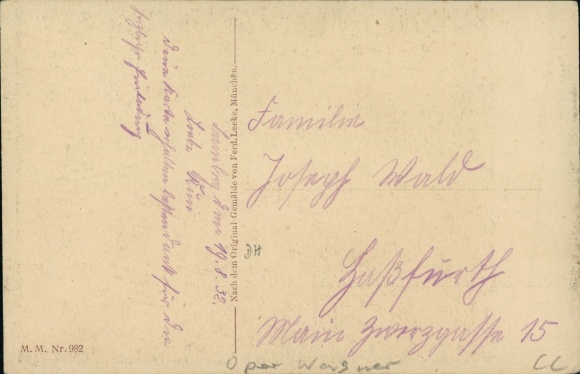 Samstag den 19.8.32.
Liebe
Deine Karte erhalten besten Dank für die
Einladung
Nach dem Original-Gemälde von Ferd. Leeke, München.
Familie
Joseph Wald
Haßfurth
Main Zwerggasse 15
DH
M. M. Nr. 982
Oper Wagner
CC